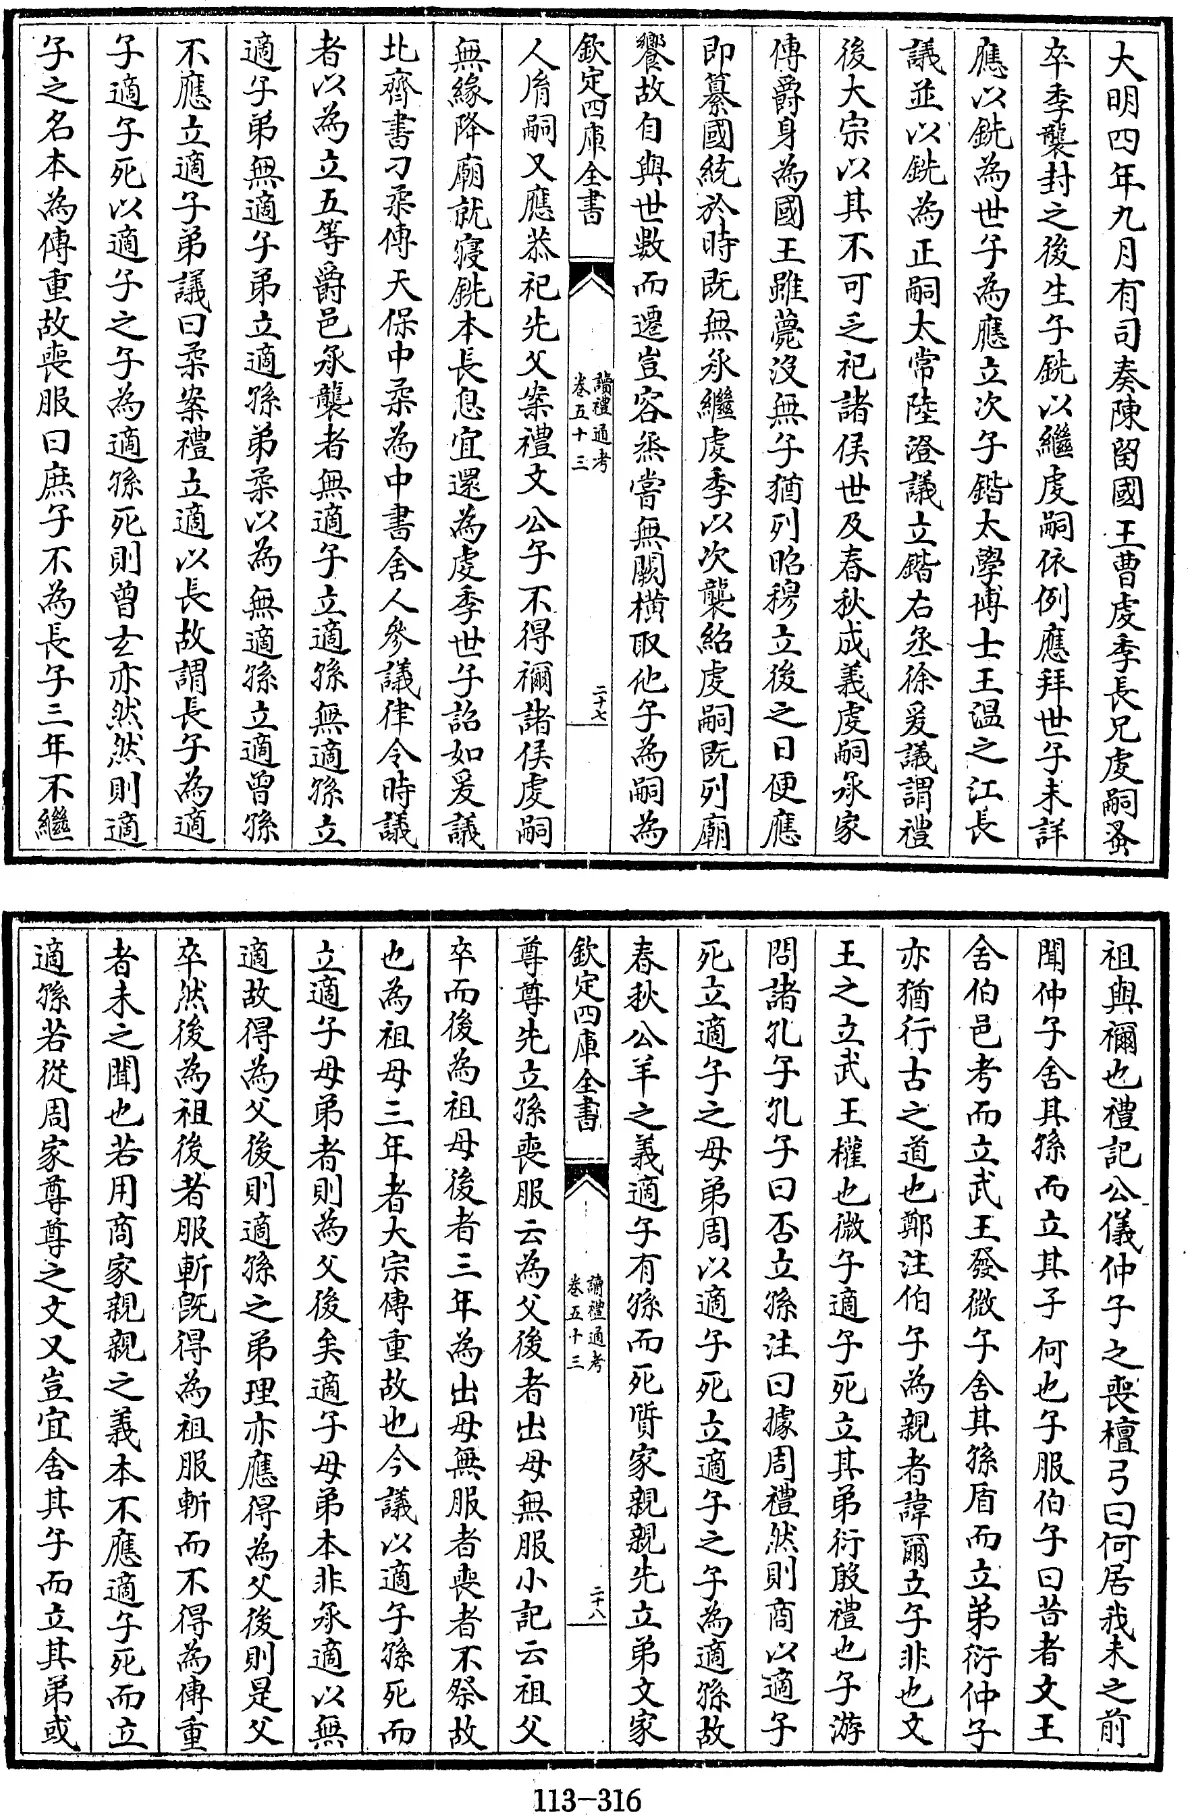 大明四年九月有司奏陳留國王曹虔季長兄虔嗣蚤
卒季襲封之後生子銑以繼虔嗣依例應拜世子未詳
應以銑為世子為應立次子鍇太學博士王温之江長
議並以銑為正嗣太常陸澄議立鍇右丞徐爰議謂禮
後大宗以其不可乏祀諸侯世及春秋成義虔嗣承家
傳爵身為國王雖薨没無子猶列昭穆立後之日便應
即纂國統於時既無承繼虔季以次襲紹虔嗣既列廟
饗故自與世數而遷豈容烝嘗無闕横取他子為嗣為
欽定四庫全書
讀禮通考
卷五十三
二十七
人胤嗣又應恭祀先父案禮文公子不得禰諸侯虔嗣
無緣降廟就寢銑本長息宜還為虔季世子詔如爰議
北齊書刁柔傳天保中柔為中書舍人參議律令時議
者以為立五等爵邑承襲者無適子立適孫無適孫立
適子弟無適子弟立適孫弟柔以為無適孫立適曾孫
不應立適子弟議曰柔案禮立適以長故謂長子為適
子適子死以適子之子為適孫死則曾玄亦然然則適
子之名本為傳重故喪服曰庶子不為長子三年不繼
祖與禰也禮記公儀仲子之喪檀弓曰何居我未之前
聞仲子舍其孫而立其子何也子服伯子曰昔者文王
舍伯邑考而立武王發微子舍其孫盾而立弟衍仲子
亦猶行古之道也鄭注伯子為親者諱爾立子非也文
王之立武王權也微子適子死立其弟衍殷禮也子游
問諸孔子孔子曰否立孫注曰據周禮然則商以適子
死立適子之母弟周以適子死立適子之子為適孫故
春秋公羊之義適子有孫而死質家親親先立弟文家
欽定四庫全書
讀禮通考
卷五十三
二十八
尊尊先立孫喪服云為父後者出母無服小記云祖父
卒而後為祖母後者三年為出母無服者喪者不祭故
也為祖母三年者大宗傳重故也今議以適子孫死而
立適子母弟者則為父後矣適子母弟本非承適以無
適故得為父後則適孫之弟理亦應得為父後則是父
卒然後為祖後者服斬既得為祖服斬而不得為傳重
者未之聞也若用商家親親之義本不應適子死而立
適孫若從周家尊尊之文又豈宜舍其子而立其弟或
113-316